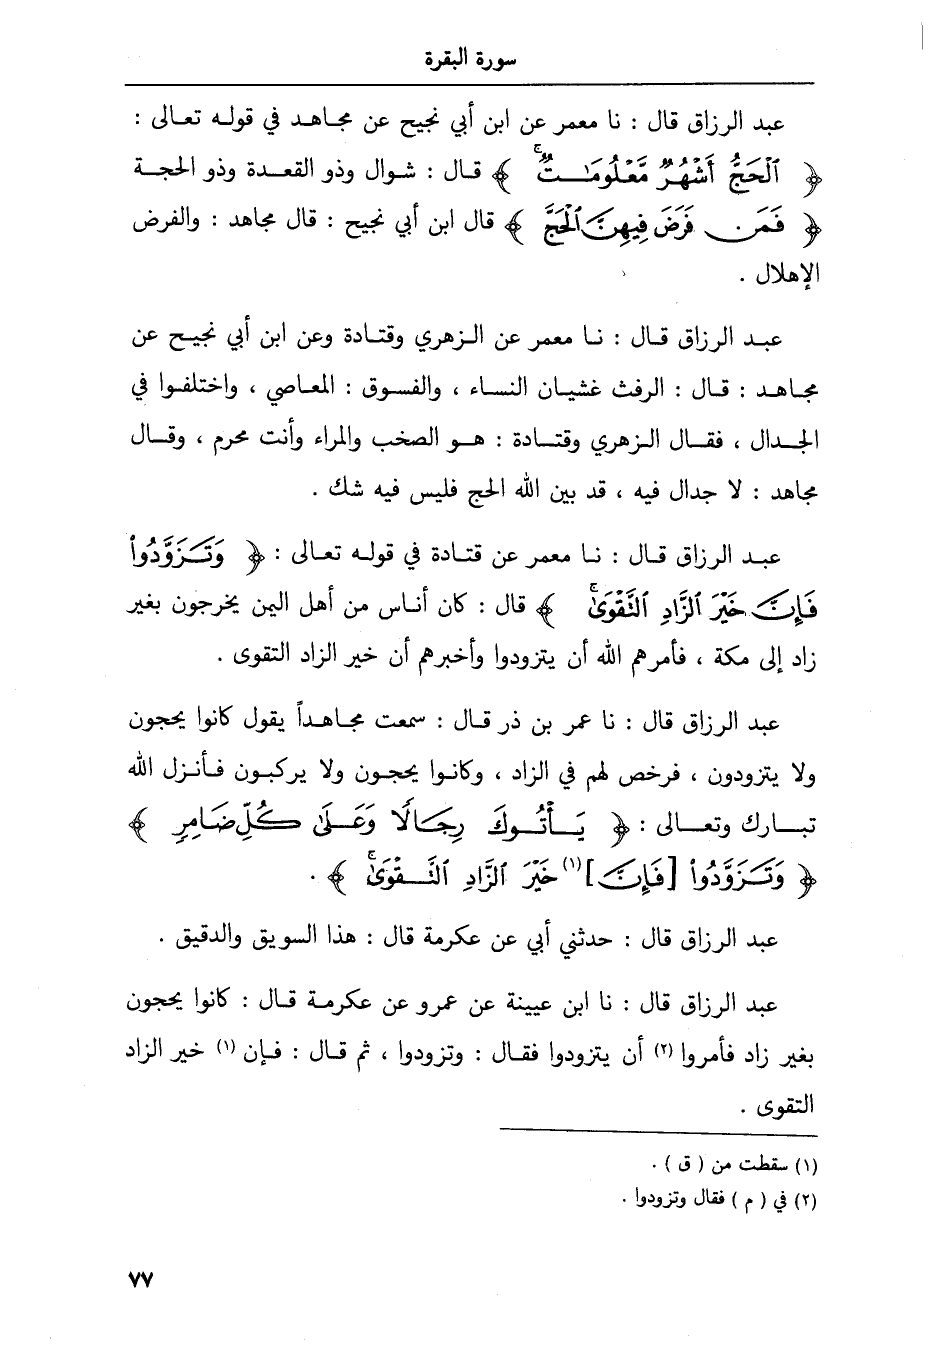 سورة البقرة
عبد الرزاق قال : نا معمر عن ابن أبي نجيح عن مجاهد في قوله تعالى :
﴿ ٱلْحَجُّ أَشْهُرٌ مَّعْلُومَٰتٌ ۚ ﴾ قال : شوال وذو القعدة وذو الحجة
﴿ فَمَن فَرَضَ فِيهِنَّ ٱلْحَجَّ ﴾ قال ابن أبي نجيح : قال مجاهد : والفرض
الإهلال .
عبد الرزاق قال : نا معمر عن الزهري وقتادة وعن ابن أبي نجيح عن
مجاهد : قال : الرفث غشيان النساء ، والفسوق : المعاصي ، واختلفوا في
الجدال ، فقال الزهري وقتادة : هو الصخب والمراء وأنت محرم ، وقال
مجاهد : لا جدال فيه ، قد بين الله الحج فليس فيه شك .
عبد الرزاق قال : نا معمر عن قتادة في قوله تعالى : ﴿ وَتَزَوَّدُوا۟
فَإِنَّ خَيْرَ ٱلزَّادِ ٱلتَّقْوَىٰ ۚ ﴾ قال : كان أناس من أهل اليمن يخرجون بغير
زاد إلى مكة ، فأمرهم الله أن يتزودوا وأخبرهم أن خير الزاد التقوى .
عبد الرزاق قال : نا عمر بن ذر قال : سمعت مجاهداً يقول كانوا يحجون
ولا يتزودون ، فرخص لهم في الزاد ، وكانوا يحجون ولا يركبون فأنزل الله
تبارك وتعالى : ﴿ يَأْتُوكَ رِجَالًا وَعَلَىٰ كُلِّ ضَامِرٍ ﴾
﴿ وَتَزَوَّدُوا۟ [فَإِنَّ](١) خَيْرَ ٱلزَّادِ ٱلتَّقْوَىٰ ۚ ﴾ .
عبد الرزاق قال : حدثني أبي عن عكرمة قال : هذا السويق والدقيق .
عبد الرزاق قال : نا ابن عيينة عن عمرو عن عكرمة قال : كانوا يحجون
بغير زاد فأمروا (٢) أن يتزودوا فقال : وتزودوا ، ثم قال : فإن (١) خير الزاد
التقوى .
(١) سقطت من ( ق ) .
(٢) في ( م ) فقال وتزودوا .
٧٧